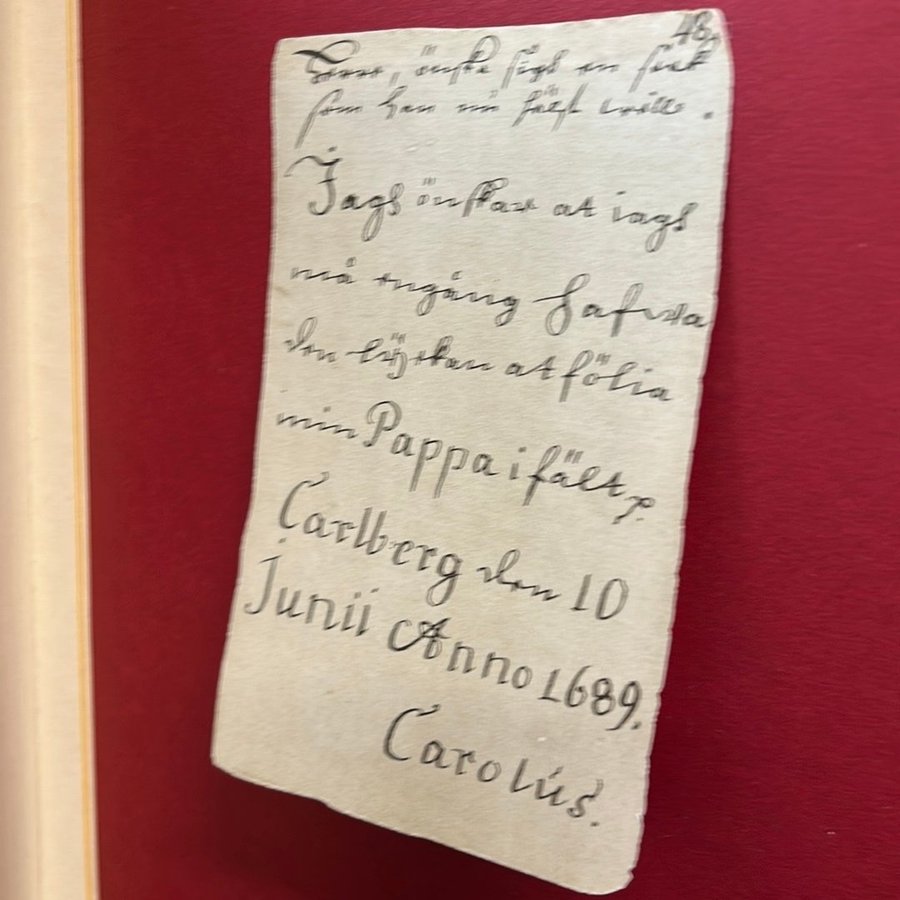 48.
önska sigh en
som han nu sielf wille.
Jagh önskar at iagh
må engång hafwa
den lÿckan at fölia
min Pappa i fält
Carlberg den 10
Junii Anno 1689.
Carolús.